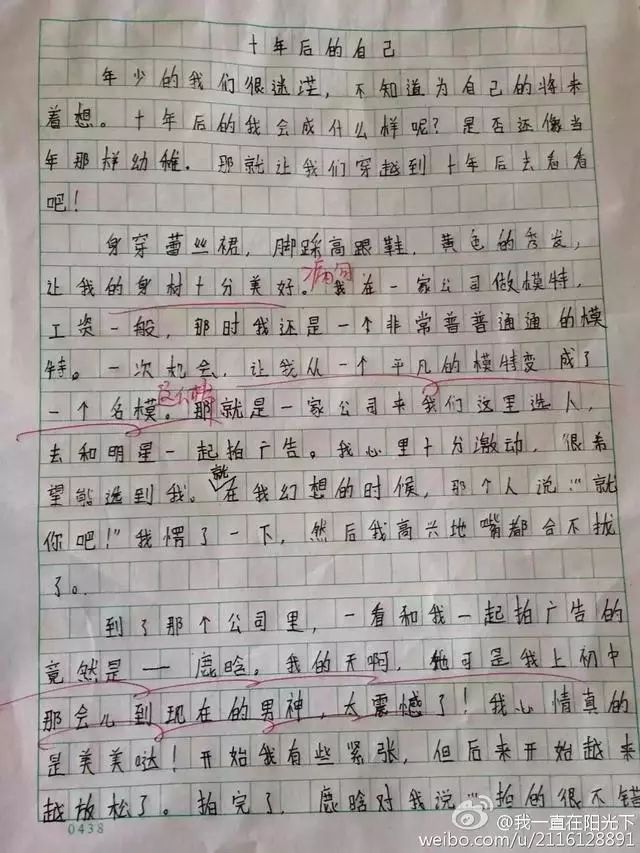 十年后的自己
年少的我们很迷茫，不知道为自己的将来
着想。十年后的我会成什么样呢？是否还像当
年那样幼稚．那就让我们穿越到十年后去看看
吧！
身穿蕾丝裙，脚踩高跟鞋，黄色的秀发，
让我的身材十分美好。病句我在一家公司做模特，
工资一般，那时我还是一个非常普普通通的模
特。一次机会，让我从一个平凡的模特变成了
一个名模。那就是一家公司来我们这里选人，
去和明星一起拍广告。我心里十分激动，很希
望能选到我。就在我幻想的时候，那个人说："就
你吧！"我愣了一下，然后我高兴地嘴都合不拢
了。
到了那个公司里，一看和我一起拍广告的
竟然是——鹿晗。我的天啊，他可是我上初中
那会儿到现在的男神，太震憾了！我心情真的
是美美哒！开始我有些紧张，但后来开始越来
越放松了。拍完了，鹿晗对我说："拍的很不错
0438
@我一直在阳光下
weibo.com/u/2116128891